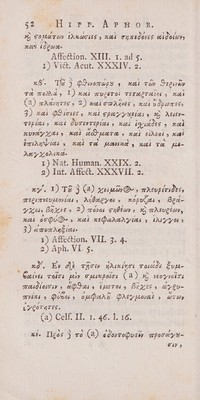 52 HIPP. APHOR.
ϗ σομάτων ἑλκώσιες, καὶ σηπεδόνες αἰδοίων,
καὶ ἵδρωα.
Affection. XIII. 1. ad 5.
1) Vict. Acut. XXXIV. 2.
κβ. Τοῦ δὲ φθινοπώρου, καὶ τῶν θερινῶν
τὰ πολλὰ, 1) καὶ πυρετοὶ τεταρταῖοι, καὶ
(a) πλάνητες, 2) καὶ σπλῆνες, καὶ ὕδρωπες,
3) καὶ φθίσιες, καὶ στραγγουρίαι, ϗ λειεν-
τερίαι, καὶ δυσεντερίαι, καὶ ἰσχιάδες, καὶ
κυνάγχαι, καὶ ἄσθματα, καὶ εἰλεοὶ, καὶ
ἐπιληψίαι, καὶ τὰ μανικὰ, καὶ τὰ με-
λαγχολικά.
1) Nat. Human. XXIX. 2.
2) Int. Affect. XXXVII. 2.
κγ. 1) Τοῦ δὲ (a) χειμῶνος, πλευρίτιδες,
περιπνευμονίαι, λήθαργοι, κόρυζαι, βράγ-
χοι, βῆχες, 2) πόνοι στηθέων, ϗ πλευρέων,
καὶ ὀσφύος, καὶ κεφαλαλγίαι, ἴλιγγοι,
3) ἀποπληξίαι.
1) Affection. VII. 3. 4.
2) Aph. VI. 5.
κδ. Ἐν δὲ τῇσιν ἡλικίῃσι τοιάδε ξυμ-
βαίνει τοῖσι μὲν σμικροῖσι (a) ϗ νεογνοῖσι
παιδίοισιν, ἄφθαι, ἔμετοι, βῆχες, ἀγρυ-
πνίαι, φόβοι, ὀμφαλοῦ φλεγμοναὶ, ὤτων
ὑγρότητες.
(a) Celf. II. 1. 46. l. 16.
κε. Πρὸς δὲ τὸ (a) ὀδοντοφυεῖν προσάγου-
σιν,